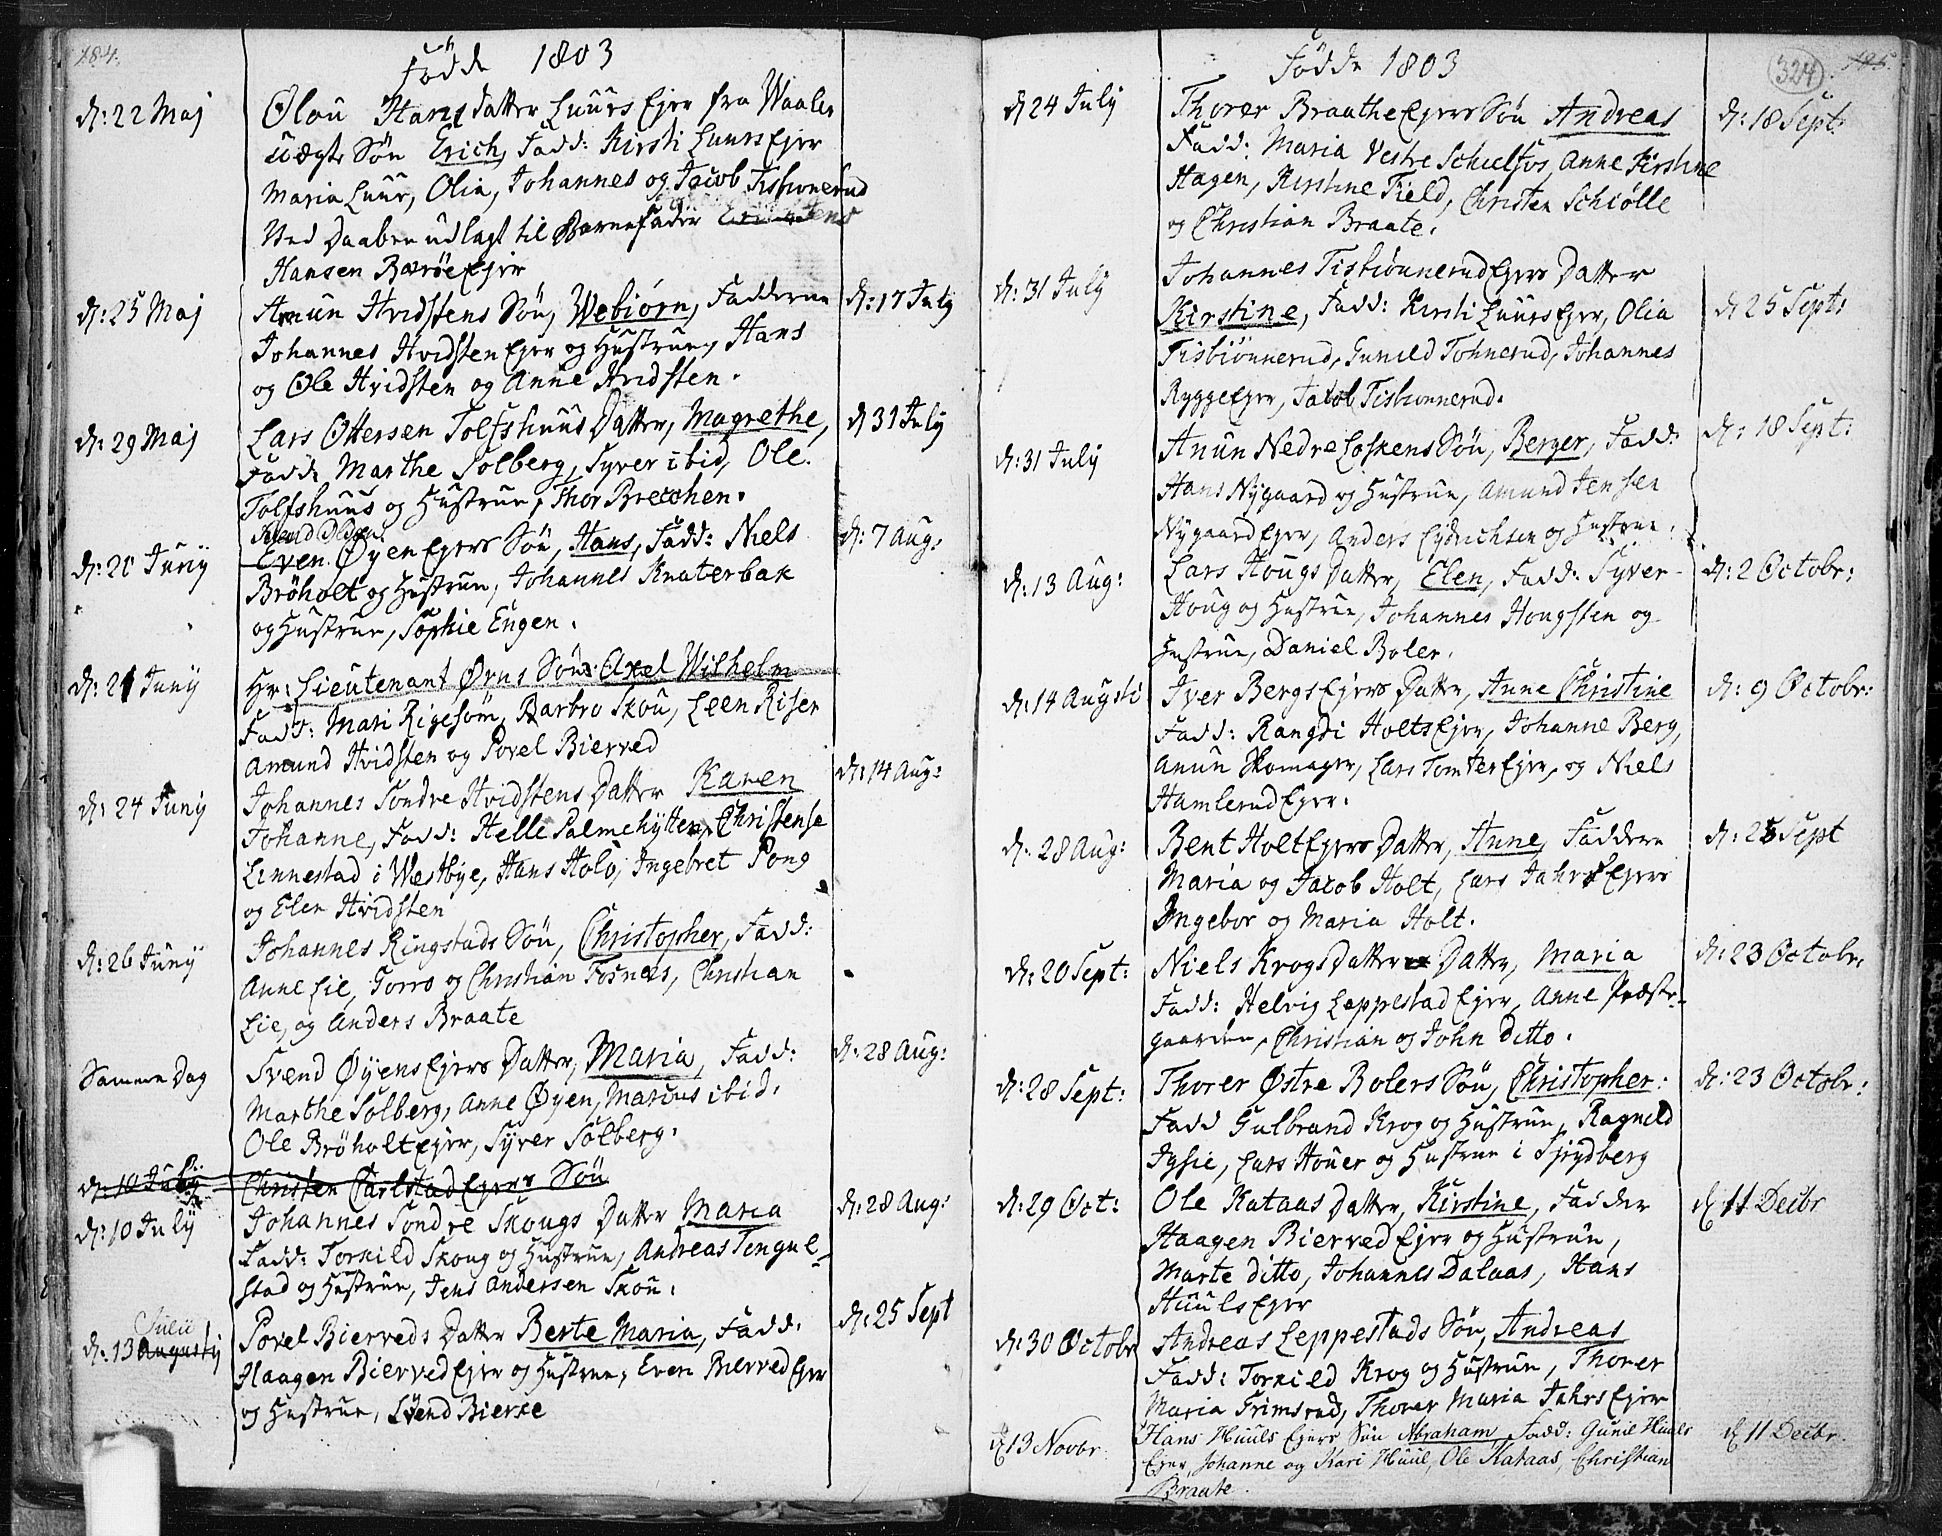 184.
Födde 1803
d: 22 Maj
Olou Hansdatter Luurs Ejer fra Waaler
uægte Søn Erich, Fadd: Kirsti LuursEjer
Maria Luur, Olia, Johannes og Jacob Tisbionerud
Ved Daaben udlagt til Barnefader
Hansen BærøeEjer
d: 25 Maj
Amun Hvidstens Søn, Webiørn, Fadderne
d: 17 July
Johannes HvidstenEjer og Hustrue, Hans
og Ole Hvidsten og Anne Hvidsten.
d: 29 Maj
Lars Ottersen Tolfshuus Datter, Magrethe,
d 31 July
Fadd: Marthe Solberg, Syver ibid, Ole
Tolfshuus og Hustrue, Thor Brecchen.
d: 21 Junij
Even ØyenEjers Søn, Hans, Fadd: Niels
d: 7 Aug:
Brøholt og Hustrue, Johannes Knaterbak
og Hustrue, Sophie Engen.
d: 21 Junij
Hr: Lieutenant Ørns Søn: Axel Wilhelm
Fadd: Mari Rigesom, Barbro Skou, Leen Riser
Amund Hvidsten og Povel Bierved
d: 24 Junij
Johannes Sondre Hvidstens Datter Karen
d: 14 Aug:
Johanne, Fadd: Helle Palmehytten, Christense
Linnestad i Westbye, Hans Holö, Ingebret Pong
og Elen Hvidsten
d: 26 Junij
Johannes Ringstads Søn, Christopher, Fadd:
Anne Lie, Torro og Christian Fosnæs, Christian
Lie, og Anders Braate
Samme Dag
Svend ØyensEjers Datter, Maria, Fadd:
d: 28 Aug:
Marthe Solberg, Anne Øyen, Marcus ibid.
Ole BrøholtEjer, Syver Solberg.
d: 10 July
Christen CarlstadEjers Søn
d: 10 July
Johannes Sondre Skougs Datter Maria
d: 28 Aug:
Fadd: Torkild Skoug og Hustrue, Andreas Tengel-
stad og Hustrue, Jens Andersen Skou.
Julii
d: 13 Augustij
Povel Bierveds Datter Berte Maria, Fadd:
d: 25 Sept
Haagen BiervedEjer og Hustrue, Even BiervedEjer
og Hustrue, Svend Bierke
Födde 1803
324
185.
d 24 July
Thorer BraatheEjers Søn Andreas
d: 18 Sept:
Fadd: Maria Vestre Schulfos, Anne Kirstine
Hagen, Kirstine Field, Christen Schiølle
og Christian Braate.
d: 31 July
Johannes TisbiønnerudEjers Datter
Kirstine, Fadd: Kirsti LuursEjer, Olia
d 25 Sept:
Tisbiønnerud, Gunild Tohnerud, Johannes
RyggeEjer, Jacob Tisbionnerud.
d: 31 July
Anun Nedre Loskens Søn, Berger, Fadd:
d: 18 Sept:
Hans Nygaard og Hustrue, Amund Jensen
NygaardEjer, Anders Eydrichsen og Hustrue.
d: 13 Aug:
Lars Hougs Datter, Elen, Fadd: Syver
d: 2 Octobr:
Houg og Hustrue, Johannes Hougsten og
Hustrue, Daniel Boler.
d: 14 Augsti
Iver BergsEjers Datter, Anne Christine
d: 9 Octobr:
Fadd: Rangdi HoltsEjer, Johanne Berg,
Anun Skomager, Lars TomterEjer, og Niels
HamlerudEjer.
d. 28 Aug:
Bent HoltEjers Datter, Anne, Faddere
d: 25 Sept
Maria og Jacob Holt, Lars JahrsEjers
Ingebor og Maria Holt.
d: 20 Sept:
Niels Krogs Datter, Maria
d: 23 Octobr:
Fadd: Helvig LeppestadEjer, Anne Præste-
gaarden, Christian og John Ditto.
d: 28 Sept:
Thorer Østre Bolers Søn, Christopher:
d: 23 Octobr:
Fadd Gulbrand Krog og Hustrue, Ragnild
Jysie, Lars Houer og Hustrue i Spydberg
d: 29 Oct:
Ole Kataas Datter, Kirstine, Fadder
d 11 Decbr
Haagen BiervedEjer og Hustrue,
Marte Ditto, Johannes Dalaas, Hans
HuulsEjer
d: 30 Octobr
Andreas Leppestads Søn, Andreas
Fadd: Torkild Krog og Hustrue, Thorer
Maria Frimsrud, Thorer Maria JahrsEjer
d 13 Novbr
Hans Huuls Ejers Søn Abraham, Fadd: Gunil Huuls
d 11 Decbr.
Ejer, Johanne og Kari Huul, Ole Kataas, Christian
Braate.